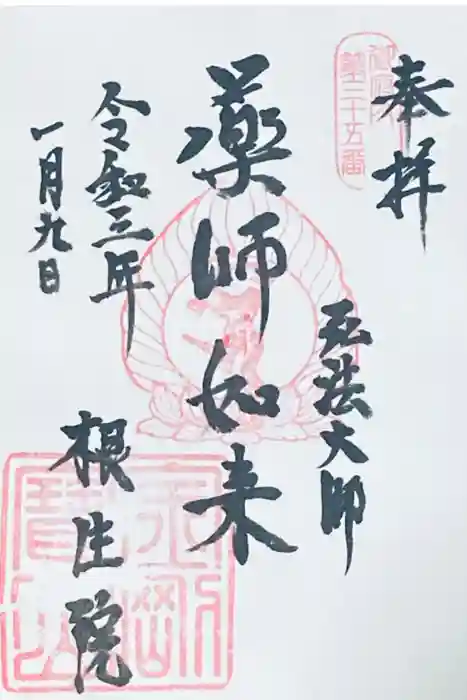 奉拝
第三十五番
弘法大師
薬師如来
令和三年
一月九日
根生院